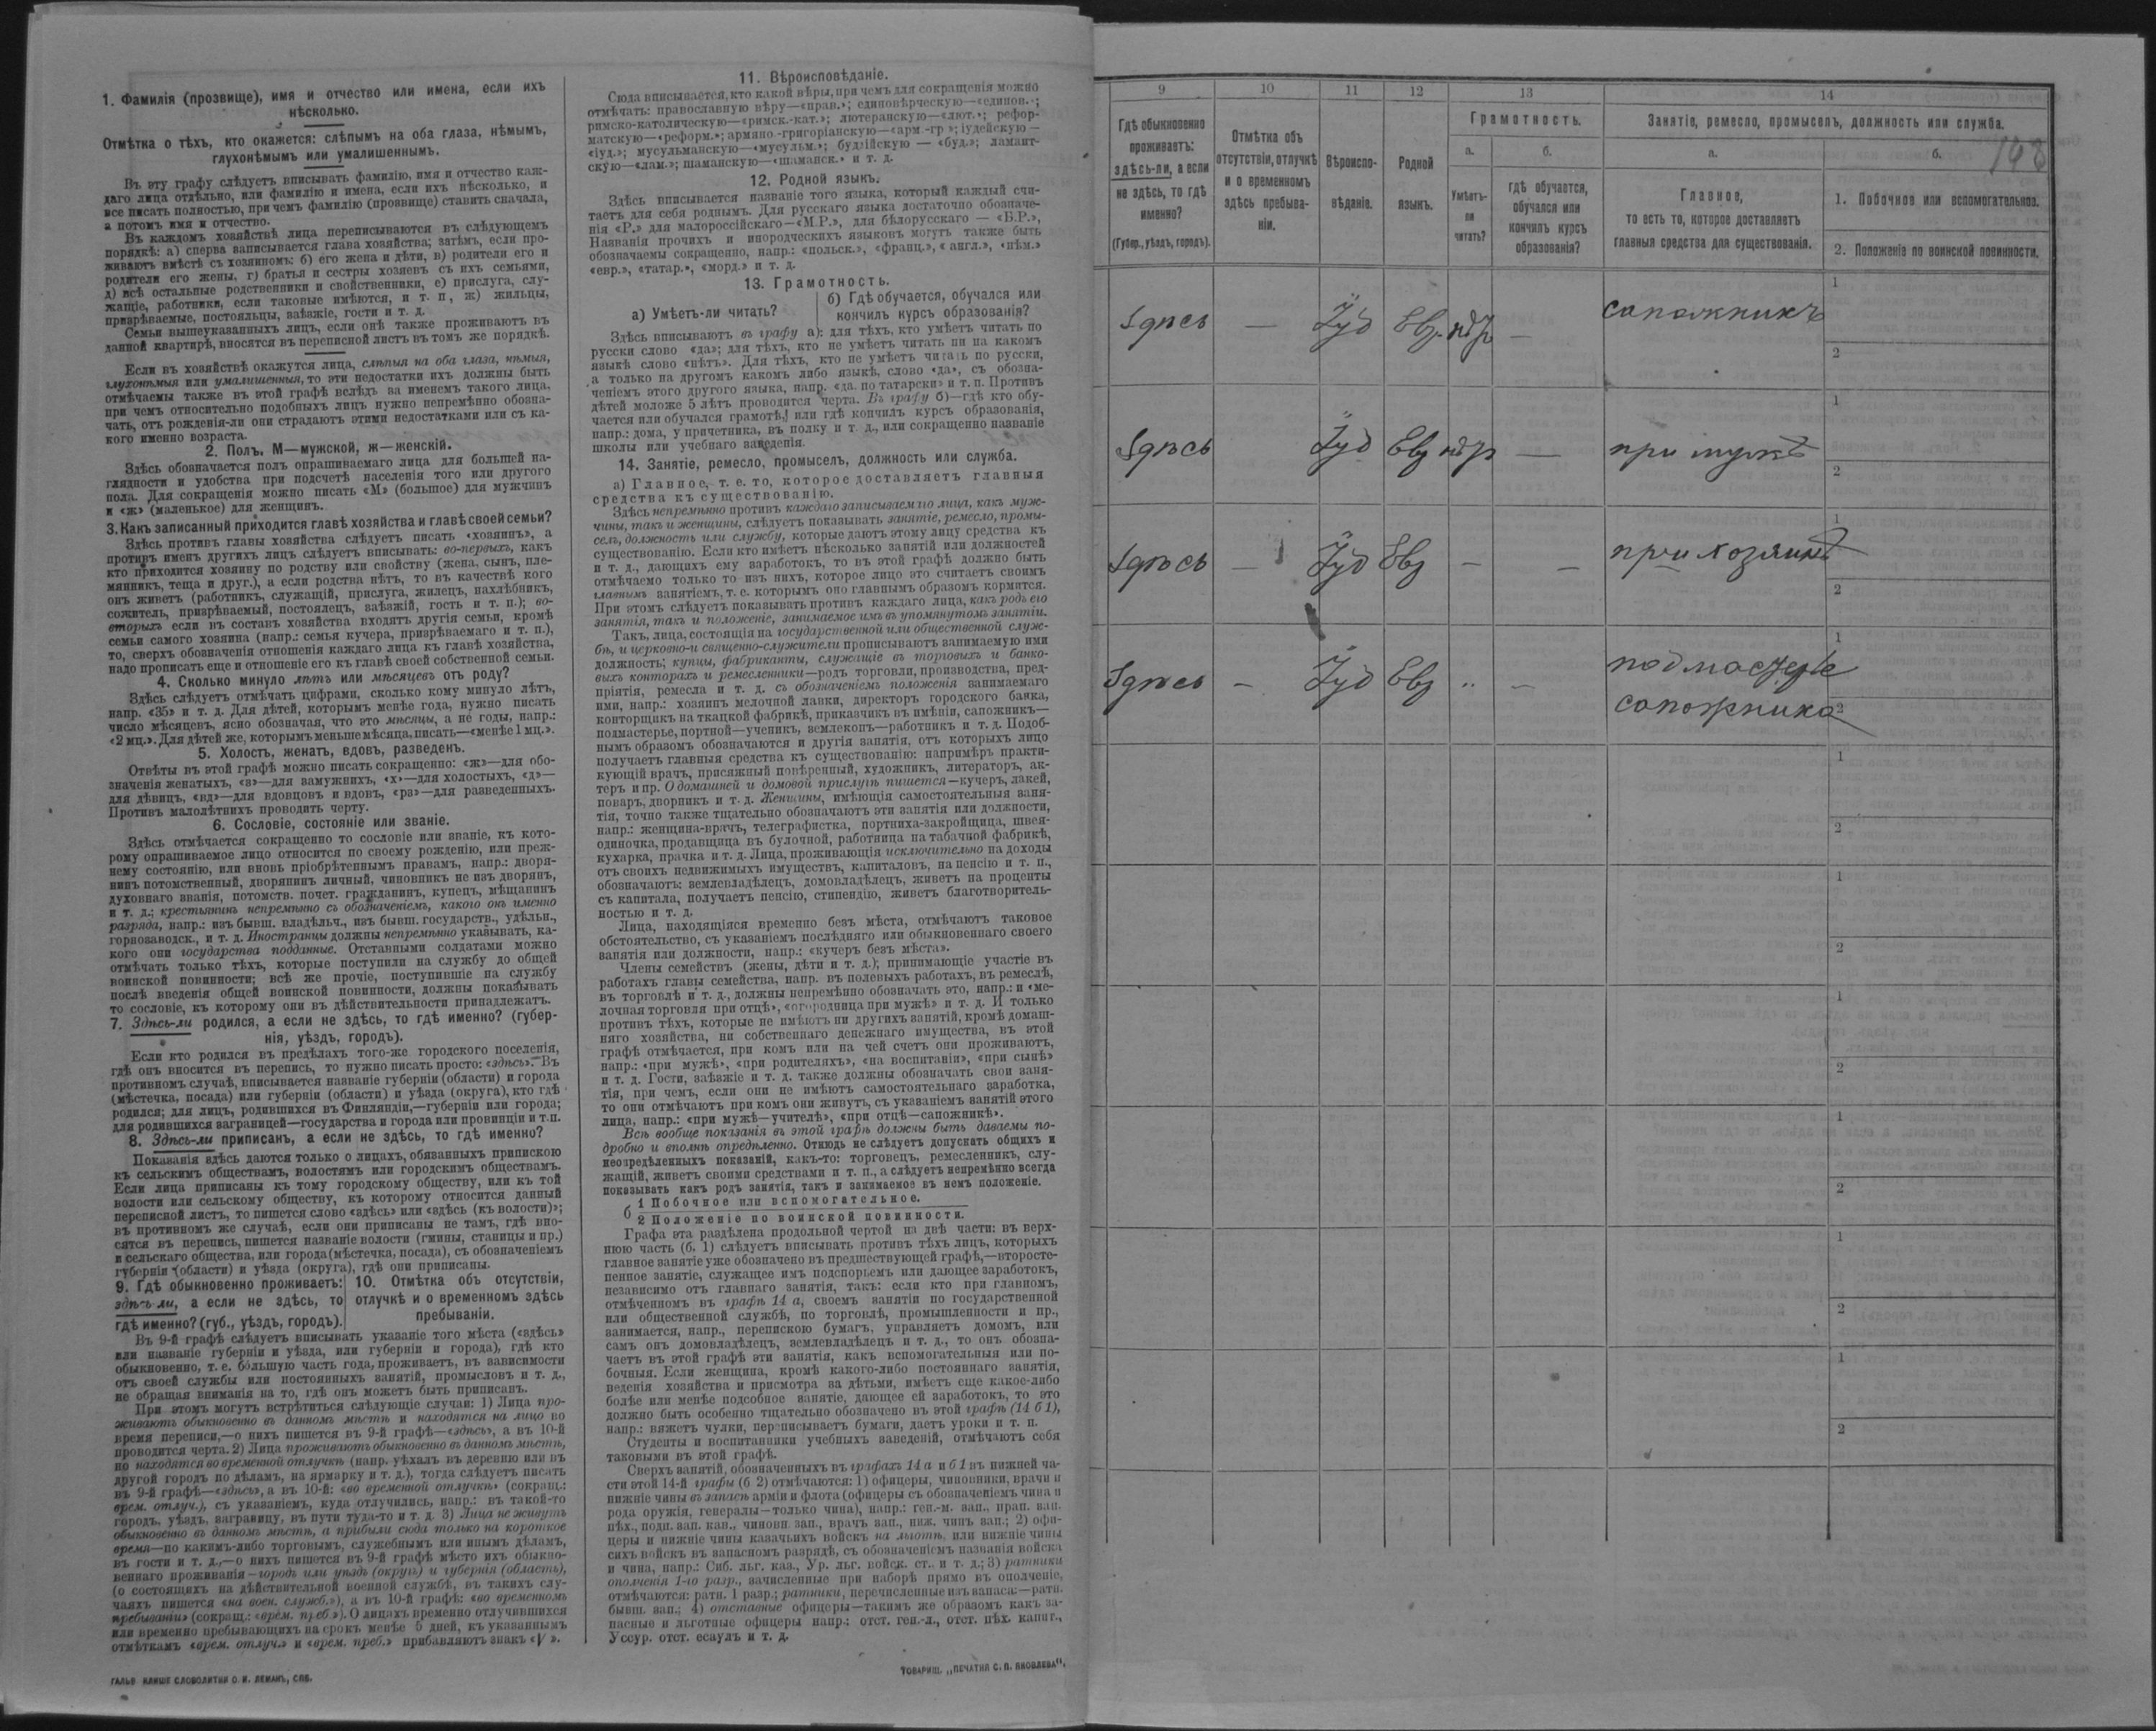 1. Фамилія (прозвище), имя и отчество или имена, если ихъ
нѣсколько.
Отмѣтка о тѣхъ, кто окажется: слѣпымъ на оба глаза, нѣмымъ,
глухонѣмымъ или умалишеннымъ.
Въ эту графу слѣдуетъ вписывать фамилію, имя и отчество каж-
даго лица отдѣльно, или фамилію и имена, если ихъ нѣсколько, и
все писать полностью, при чемъ фамилію (прозвище) ставить сначала,
а потомъ имя и отчество.
Въ каждомъ хозяйствѣ лица переписываются въ слѣдующемъ
порядкѣ: а) сперва записывается глава хозяйства; затѣмъ, если про-
живаютъ вмѣстѣ съ хозяиномъ: б) его жена и дѣти, в) родители его и
родители его жены, г) братья и сестры хозяевъ съ ихъ семьями,
д) всѣ остальные родственники и свойственники, е) прислуга, слу-
жащіе, работники, если таковые имѣются, и т. п, ж) жильцы,
призрѣваемые, постояльцы, заѣзжіе, гости и т. д.
Семьи вышеуказанныхъ лицъ, если онѣ также проживаютъ въ
данной квартирѣ, вносятся въ переписной листъ въ томъ же порядкѣ.
Если въ хозяйствѣ окажутся лица, слѣпыя на оба глаза, нѣмыя,
глухонѣмыя или умалишенныя, то эти недостатки ихъ должны быть
отмѣчаемы также въ этой графѣ вслѣдъ за именемъ такого лица,
при чемъ относительно подобныхъ лицъ нужно непремѣнно обозна-
чать, отъ рожденія-ли они страдаютъ этими недостатками или съ ка-
кого именно возраста.
2. Полъ. М—мужской, ж—женскій.
Здѣсь обозначается полъ опрашиваемаго лица для большей на-
глядности и удобства при подсчетѣ населенія того или другого
пола. Для сокращенія можно писать «М» (большое) для мужчинъ
и «ж» (маленькое) для женщинъ.
3. Какъ записанный приходится главѣ хозяйства и главѣ своей семьи?
Здѣсь противъ главы хозяйства слѣдуетъ писать «хозяинъ», а
противъ именъ другихъ лицъ слѣдуетъ вписывать: во-первыхъ, какъ
кто приходится хозяину по родству или свойству (жена, сынъ, пле-
мянникъ, теща и друг.), а если родства нѣтъ, то въ качествѣ кого
онъ живетъ (работникъ, служащій, прислуга, жилецъ, нахлѣбникъ,
сожитель, призрѣваемый, постоялецъ, заѣзжій, гость и т. п.); во-
вторыхъ если въ составъ хозяйства входятъ другія семьи, кромѣ
семьи самого хозяина (напр.: семья кучера, призрѣваемаго и т. п.),
то, сверхъ обозначенія отношенія каждаго лица къ главѣ хозяйства,
надо прописать еще и отношеніе его къ главѣ своей собственной семьи.
4. Сколько минуло лѣтъ или мѣсяцевъ отъ роду?
Здѣсь слѣдуетъ отмѣчать цифрами, сколько кому минуло лѣтъ,
напр. «35» и т. д. Для дѣтей, которымъ менѣе года, нужно писать
число мѣсяцевъ, ясно обозначая, что это мѣсяцы, а не годы, напр.:
«2 мц.». Для дѣтей же, которымъ меньше мѣсяца, писать—«менѣе 1 мц.».
5. Холостъ, женатъ, вдовъ, разведенъ.
Отвѣты въ этой графѣ можно писать сокращенно: «ж»—для обо-
значенія женатыхъ, «з»—для замужнихъ, «х»—для холостыхъ, «д»—
для дѣвицъ, «вд»—для вдовцовъ и вдовъ, «рз»—для разведенныхъ.
Противъ малолѣтнихъ проводить черту.
6. Сословіе, состояніе или званіе.
Здѣсь отмѣчается сокращенно то сословіе или званіе, къ кото-
рому опрашиваемое лицо относится по своему рожденію, или преж-
нему состоянію, или вновь пріобрѣтеннымъ правамъ, напр.: дворя-
нинъ потомственный, дворянинъ личный, чиновникъ не изъ дворянъ,
духовнаго званія, потомств. почет. гражданинъ, купецъ, мѣщанинъ
и т. д.; крестьянинъ непремѣнно съ обозначеніемъ, какого онъ именно
разряда, напр.: изъ бывш. владѣльч., изъ бывш. государств., удѣльн.,
горнозаводск., и т. д. Иностранцы должны непремѣнно указывать, ка-
кого они государства подданные. Отставными солдатами можно
отмѣчать только тѣхъ, которые поступили на службу до общей
воинской повинности; всѣ же прочіе, поступившіе на службу
послѣ введенія общей воинской повинности, должны показывать
то сословіе, къ которому они въ дѣйствительности принадлежатъ.
7. Здѣсь-ли родился, а если не здѣсь, то гдѣ именно? (губер-
нія, уѣздъ, городъ).
Если кто родился въ предѣлахъ того-же городского поселенія,
гдѣ онъ вносится въ перепись, то нужно писать просто: «здѣсь». Въ
противномъ случаѣ, вписывается названіе губерніи (области) и города
(мѣстечка, посада) или губерніи (области) и уѣзда (округа), кто гдѣ
родился; для лицъ, родившихся въ Финляндіи,—губерніи или города;
для родившихся заграницей—государства и города или провинціи и т.п.
8. Здѣсь-ли приписанъ, а если не здѣсь, то гдѣ именно?
Показанія здѣсь даются только о лицахъ, обязанныхъ припискою
къ сельскимъ обществамъ, волостямъ или городскимъ обществамъ.
Если лица приписаны къ тому городскому обществу, или къ той
волости или сельскому обществу, къ которому относится данный
переписной листъ, то пишется слово «здѣсь» или «здѣсь (къ волости)»;
въ противномъ же случаѣ, если они приписаны не тамъ, гдѣ вно-
сятся въ перепись, пишется названіе волости (гмины, станицы и пр.)
и сельскаго общества, или города (мѣстечка, посада), съ обозначеніемъ
губерніи (области) и уѣзда (округа), гдѣ они приписаны.
9. Гдѣ обыкновенно проживаетъ:
здѣсь ли, а если не здѣсь, то
гдѣ именно? (губ., уѣздъ, городъ).
10. Отмѣтка объ отсутствіи,
отлучкѣ и о временномъ здѣсь
пребываніи.
Въ 9-й графѣ слѣдуетъ вписывать указаніе того мѣста («здѣсь»
или названіе губерніи и уѣзда, или губерніи и города), гдѣ кто
обыкновенно, т. е. большую часть года, проживаетъ, въ зависимости
отъ своей службы или постоянныхъ занятій, промысловъ и т. д.,
не обращая вниманія на то, гдѣ онъ можетъ быть приписанъ.
При этомъ могутъ встрѣтиться слѣдующіе случаи: 1) Лица про-
живаютъ обыкновенно въ данномъ мѣстѣ и находятся на лицо во
время переписи,—о нихъ пишется въ 9-й графѣ—«здѣсь», а въ 10-й
проводится черта. 2) Лица проживаютъ обыкновенно въ данномъ мѣстѣ,
но находятся во временной отлучкѣ (напр. уѣхалъ въ деревню или въ
другой городъ по дѣламъ, на ярмарку и т. д.), тогда слѣдуетъ писать
въ 9-й графѣ—«здѣсь», а въ 10-й: «во временной отлучкѣ» (сокращ.:
врем. отлуч.), съ указаніемъ, куда отлучились, напр.: въ такой-то
городъ, уѣздъ, заграницу, въ пути туда-то и т. д. 3) Лица не живутъ
обыкновенно въ данномъ мѣстѣ, а прибыли сюда только на короткое
время—по какимъ-либо торговымъ, служебнымъ или инымъ дѣламъ,
въ гости и т. д.,—о нихъ пишется въ 9-й графѣ мѣсто ихъ обыкно-
веннаго проживанія—городъ или уѣздъ (округъ) и губернія (область),
(о состоящихъ на дѣйствительной военной службѣ, въ такихъ слу-
чаяхъ пишется «на воен. служб.»), а въ 10-й графѣ: «во временномъ
пребываніи» (сокращ.: «врем. преб.»). О лицахъ временно отлучившихся
или временно пребывающихъ на срокъ менѣе 5 дней, къ указаннымъ
отмѣткамъ «врем. отлуч.» и «врем. преб.» прибавляютъ знакъ «V».
ГАЛЬВ. КЛИШЕ СЛОВОЛИТНИ О. И. ЛЕМАНЪ, СПБ.
11. Вѣроисповѣданіе.
Сюда вписывается, кто какой вѣры, при чемъ для сокращенія можно
отмѣчать: православную вѣру—«прав.»; единовѣрческую—«единов.»;
римско-католическую—«римск.-кат.»; лютеранскую—«лют.»; рефор-
матскую—«реформ.»; армяно-григоріанскую—«арм.-гр»; іудейскую—
«іуд.»; мусульманскую—«мусульм.»; буддійскую — «буд.»; ламаит-
скую—«лам.»; шаманскую—«шаманск.» и т. д.
12. Родной языкъ.
Здѣсь вписывается названіе того языка, который каждый счи-
таетъ для себя роднымъ. Для русскаго языка достаточно обозначе-
нія «Р.» для малороссійскаго—«М.Р.», для бѣлорусскаго — «Б.Р.»,
Названія прочихъ и инородческихъ языковъ могутъ также быть
обозначаемы сокращенно, напр.: «польск.», «франц.», «англ.», «нѣм.»
«евр.», «татар.», «морд.» и т. д.
13. Грамотность.
а) Умѣетъ-ли читать?
б) Гдѣ обучается, обучался или
кончилъ курсъ образованія?
Здѣсь вписываютъ въ графу а): для тѣхъ, кто умѣетъ читать по
русски слово «да»; для тѣхъ, кто не умѣетъ читать ни на какомъ
языкѣ слово «нѣтъ». Для тѣхъ, кто не умѣетъ читать по русски,
а только на другомъ какомъ либо языкѣ, слово «да», съ обозна-
ченіемъ этого другого языка, напр. «да. по татарски» и т. п. Противъ
дѣтей моложе 5 лѣтъ проводится черта. Въ графу б)—гдѣ кто обу-
чается или обучался грамотѣ, или гдѣ кончилъ курсъ образованія,
напр.: дома, у причетника, въ полку и т. д., или сокращенно названіе
школы или учебнаго заведенія.
14. Занятіе, ремесло, промыселъ, должность или служба.
а) Главное, т. е. то, которое доставляетъ главныя
средства къ существованію.
Здѣсь непремѣнно противъ каждаго записываемаго лица, какъ муж-
чины, такъ и женщины, слѣдуетъ показывать занятіе, ремесло, промы-
селъ, должность или службу, которые даютъ этому лицу средства къ
существованію. Если кто имѣетъ нѣсколько занятій или должностей
и т. д., дающихъ ему заработокъ, то въ этой графѣ должно быть
отмѣчаемо только то изъ нихъ, которое лицо это считаетъ своимъ
главнымъ занятіемъ, т. е. которымъ оно главнымъ образомъ кормится.
При этомъ слѣдуетъ показывать противъ каждаго лица, какъ родъ его
занятія, такъ и положеніе, занимаемое имъ въ упомянутомъ занятіи.
Такъ, лица, состоящія на государственной или общественной служ-
бѣ, и церковно-и священно-служители прописываютъ занимаемую ими
должность; купцы, фабриканты, служащіе въ торговыхъ и банко-
выхъ конторахъ и ремесленники—родъ торговли, производства, пред-
пріятія, ремесла и т. д. съ обозначеніемъ положенія занимаемаго
ими, напр.: хозяинъ мелочной лавки, директоръ городского банка,
конторщикъ на ткацкой фабрикѣ, приказчикъ въ имѣніи, сапожникъ—
подмастерье, портной—ученикъ, землекопъ—работникъ и т. д. Подоб-
нымъ образомъ обозначаются и другія занятія, отъ которыхъ лицо
получаетъ главныя средства къ существованію: напримѣръ практи-
кующій врачъ, присяжный повѣренный, художникъ, литераторъ, ак-
теръ и пр. О домашней и домовой прислугѣ пишется—кучеръ, лакей,
поваръ, дворникъ и т. д. Женщины, имѣющія самостоятельныя заня-
тія, точно также тщательно обозначаютъ эти занятія или должности,
напр.: женщина-врачъ, телеграфистка, портниха-закройщица, швея-
одиночка, продавщица въ булочной, работница на табачной фабрикѣ,
кухарка, прачка и т. д. Лица, проживающія исключительно на доходы
отъ своихъ недвижимыхъ имуществъ, капиталовъ, на пенсію и т. п.,
обозначаютъ: землевладѣлецъ, домовладѣлецъ, живетъ на проценты
съ капитала, получаетъ пенсію, стипендію, живетъ благотворитель-
ностью и т. д.
Лица, находящіяся временно безъ мѣста, отмѣчаютъ таковое
обстоятельство, съ указаніемъ послѣдняго или обыкновеннаго своего
занятія или должности, напр.: «кучеръ безъ мѣста».
Члены семействъ (жены, дѣти и т. д.); принимающіе участіе въ
работахъ главы семейства, напр. въ полевыхъ работахъ, въ ремеслѣ,
въ торговлѣ и т. д., должны непремѣнно обозначать это, напр.: и «ме-
лочная торговля при отцѣ», «огородница при мужѣ» и т. д. И только
противъ тѣхъ, которые не имѣютъ ни другихъ занятій, кромѣ домаш-
няго хозяйства, ни собственнаго денежнаго имущества, въ этой
графѣ отмѣчается, при комъ или на чей счетъ они проживаютъ,
напр.: «при мужѣ», «при родителяхъ», «на воспитаніи», «при сынѣ»
и т. д. Гости, заѣзжіе и т. д. также должны обозначать свои заня-
тія, при чемъ, если они не имѣютъ самостоятельнаго заработка,
то они отмѣчаютъ при комъ они живутъ, съ указаніемъ занятій этого
лица, напр.: «при мужѣ—учителѣ», «при отцѣ—сапожникѣ».
Всѣ вообще показанія въ этой графѣ должны быть даваемы по-
дробно и вполнѣ опредѣленно. Отнюдь не слѣдуетъ допускать общихъ и
неопредѣленныхъ показаній, какъ-то: торговецъ, ремесленникъ, слу-
жащій, живетъ своими средствами и т. п., а слѣдуетъ непремѣнно всегда
показывать какъ родъ занятія, такъ и занимаемое въ немъ положеніе.
б 1 Побочное или вспомогательное.
2 Положеніе по воинской повинности.
Графа эта раздѣлена продольной чертой на двѣ части: въ верх-
нюю часть (б. 1) слѣдуетъ вписывать противъ тѣхъ лицъ, которыхъ
главное занятіе уже обозначено въ предшествующей графѣ,—второсте-
пенное занятіе, служащее имъ подспорьемъ или дающее заработокъ,
независимо отъ главнаго занятія, такъ: если кто при главномъ,
отмѣченномъ въ графѣ 14 а, своемъ занятіи по государственной
или общественной службѣ, по торговлѣ, промышленности и пр.,
занимается, напр., перепискою бумагъ, управляетъ домомъ, или
самъ онъ домовладѣлецъ, землевладѣлецъ и т. д., то онъ обозна-
чаетъ въ этой графѣ эти занятія, какъ вспомогательныя или по-
бочныя. Если женщина, кромѣ какого-либо постояннаго занятія,
веденія хозяйства и присмотра за дѣтьми, имѣетъ еще какое-либо
болѣе или менѣе подсобное занятіе, дающее ей заработокъ, то это
должно быть особенно тщательно обозначено въ этой графѣ (14 б 1),
напр.: вяжетъ чулки, переписываетъ бумаги, даетъ уроки и т. п.
Студенты и воспитанники учебныхъ заведеній, отмѣчаютъ себя
таковыми въ этой графѣ.
Сверхъ занятій, обозначенныхъ въ графахъ 14 а и б 1 въ нижней ча-
сти этой 14-й графы (б 2) отмѣчаются: 1) офицеры, чиновники, врачи и
нижніе чины въ запасѣ арміи и флота (офицеры съ обозначеніемъ чина и
рода оружія, генералы—только чина), напр.: ген.-м. зап., прап. зап.
пѣх., подп. зап. кав., чиновн. зап., врачъ зап., ниж. чинъ зап.; 2) офи-
церы и нижніе чины казачьихъ войскъ на льготѣ, или нижніе чины
сихъ войскъ въ запасномъ разрядѣ, съ обозначеніемъ названія войска
и чина, напр.: Сиб. льг. каз., Ур. льг. войск. ст.. и т. д.; 3) ратники
ополченія 1-го разр., зачисленные при наборѣ прямо въ ополченіе,
отмѣчаются: ратн. 1 разр.; ратники, перечисленные изъ запаса:—ратн.
бывш. зап.; 4) отставные офицеры—такимъ же образомъ какъ за-
пасные и льготные офицеры напр.: отст. ген.-л., отст. пѣх. капит.,
Уссур. отст. есаулъ и т. д.
ТОВАРИЩ. „ПЕЧАТНЯ С. П. ЯКОВЛЕВА".
9 10 11 12 13 14
Гдѣ обыкновенно
проживаетъ:
здѣсь-ли, а если
не здѣсь, то гдѣ
именно?
(Губер., уѣздъ, городъ).
Отмѣтка объ
отсутствіи, отлучкѣ
и о временномъ
здѣсь пребыва-
ніи.
Вѣроиспо-
вѣданіе.
Родной
языкъ.
Грамотность.
а.
Умѣетъ-
ли
читать?
б.
гдѣ обучается,
обучался или
кончилъ курсъ
образованія?
Занятіе, ремесло, промыселъ, должность или служба.
а.
Главное,
то есть то, которое доставляетъ
главныя средства для существованія.
б.
1. Побочное или вспомогательное.
2. Положеніе по воинской повинности.
здѣсь — Іуд Евр. нѣт — сапожникъ
1
2
здѣсь Іуд Евр нѣт — при мужѣ
1
2
здѣсь — Іуд Евр — — при хозяинѣ
1
2
здѣсь — Іуд Евр " — подмастерье
сапожника
1
2
1
2
1
2
1
2
1
2
1
2
1
2